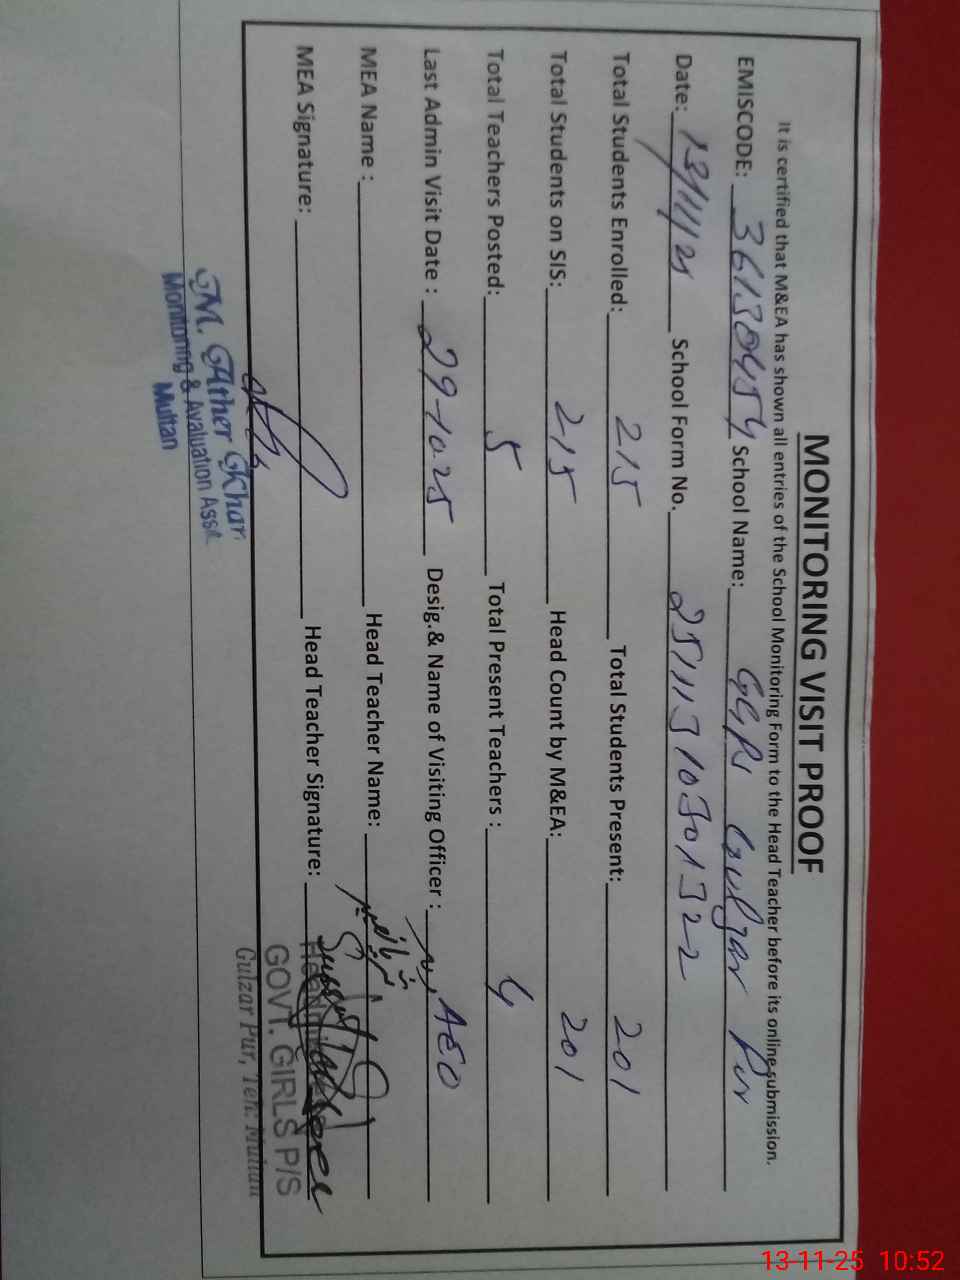 MONITORING VISIT PROOF
It is certified that M&EA has shown all entries of the School Monitoring Form to the Head Teacher before its online submission.
EMISCODE: 36130454 School Name: GGPS Gulzar Pur
Date: 13/11/25 School Form No. 2511131030132 2
Total Students Enrolled: 215 Total Students Present: 201
Total Students on SIS: 215 Head Count by M&EA: 201
Total Teachers Posted: 5 Total Present Teachers : 4
Last Admin Visit Date : 29-10-25 Desig.& Name of Visiting Officer : AEO
MEA Name : Head Teacher Name:
MEA Signature: Head Teacher Signature:
GOVT. GIRLS P/S
Gulzar Pur, Teh: Multan
M. Ather Khan
Monitoring & Avaluation Asst.
Multan
13-11-25 10:52